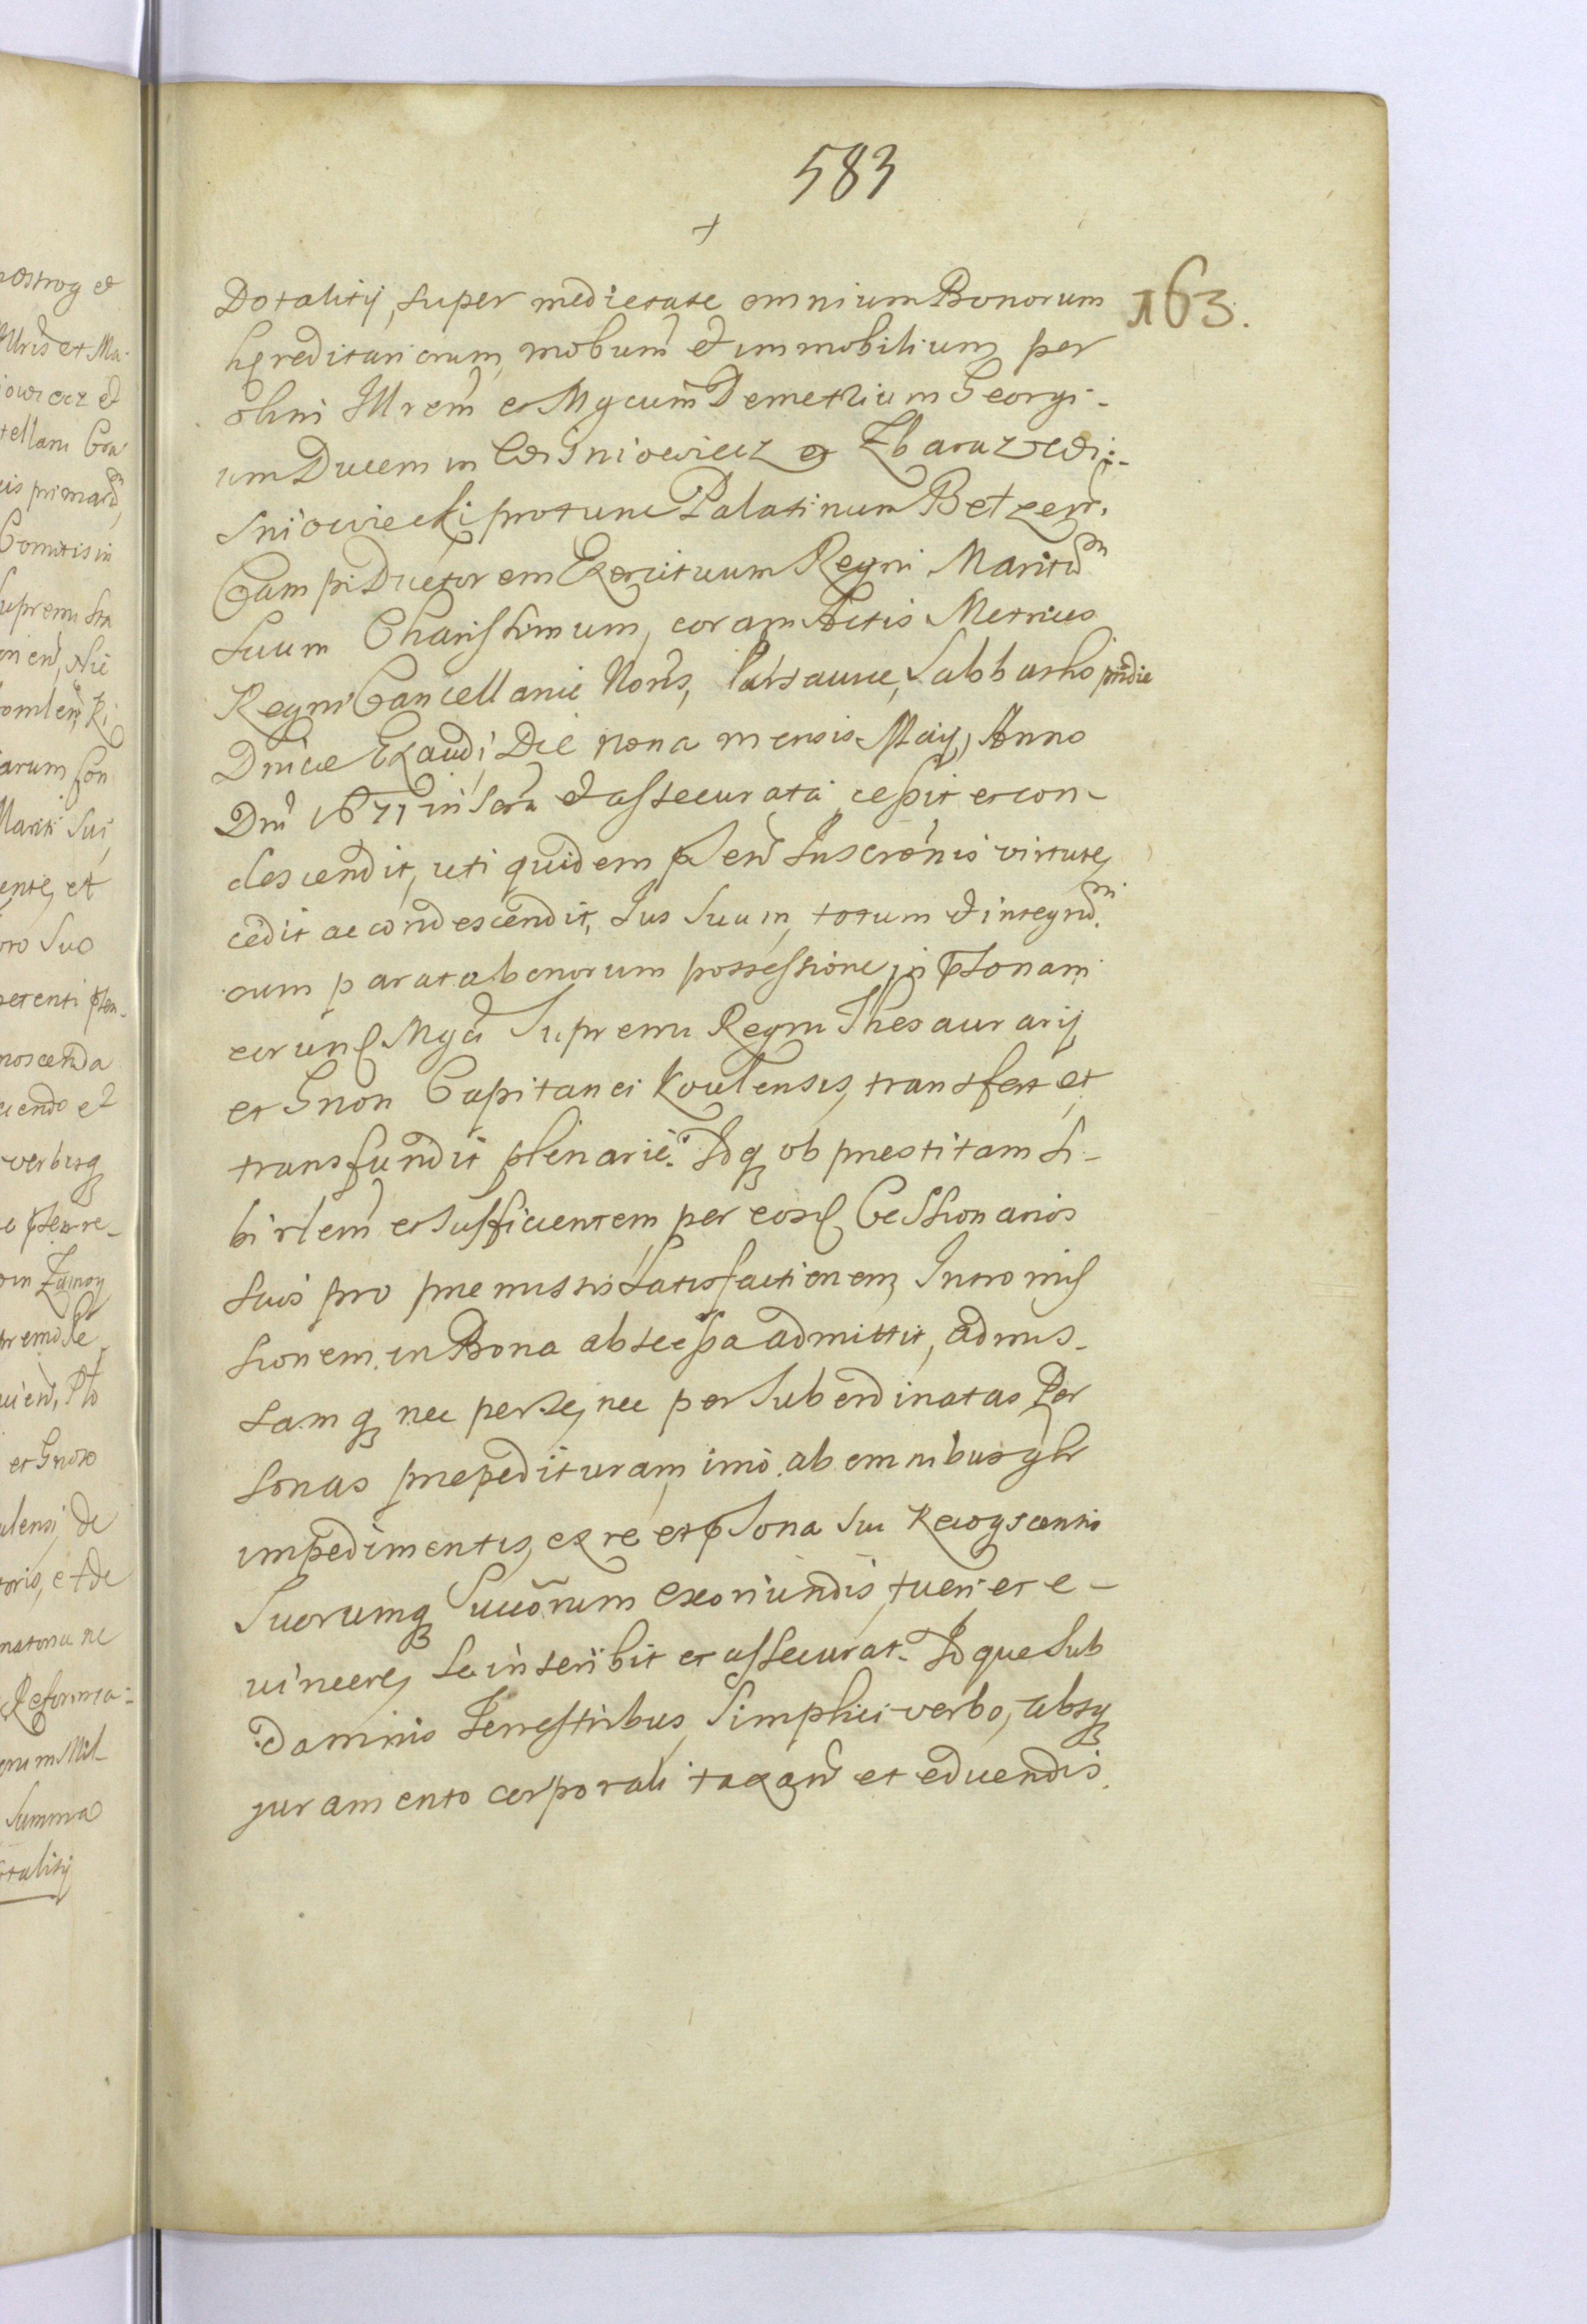 583
163.
Dotalitij, super medietate omnium Bonorum
hęreditariorum, mobum et immobilium per
olim Illrem et Mgcum Demetrium Georgi-
um Ducem in Wisniowiecz et Zbaraz Wi-
sniowiecki protunc Palatinum Betzen.
Campi Ductorem Exercituum Regni Maritum
Suum Charissimum, coram Actis Metrices
Regni Cancellariae Noris, Varsaviae, Sabbatho pridie
Dnicae Exaudi, Die nona mensis Maij, Anno
Dni 1671 in Scra et assecurata cessit et con-
descendit, uti quidem pnsen Inscronis virtute,
cedit ac condescendit, Jus Suum, totum et integrum.
cum parata bonorum possessione, in psonam
eorund Mgci Supremi Regni Thesaurarij,
et Gnosi Capitanei Kovelensis, transfert et
transfundit plenarie. Idq ob prestitam si-
bi rlem et sufficientem per eosd Cessionarios
suis pro premissis Satisfactionem, Intromis
sionem in Bona abs se cessa admittit, admis-
samq nec per se, nec per subordinatas Per
sonas prepedituram, imo ab omnibus glr
impedimentis, ex re et psona sui Recogscentis
Suorumq Succorum exoriundis, tueri et e-
vincere, se inscribit et assecurat. Idque sub
damnis Terrestribus, Simplici verbo, absq
juramento corporali taxand et educendis.
ostrog et
Illris et Ma-
iowiecz et
tellani Cra
Comitis in
supremi
arum Con
Mariti Sui,
ente, et
oro suo
noscenda
verbisq
in Zamoy
et Gnoso
oris, et de
Reforma-
Summa
otalitij